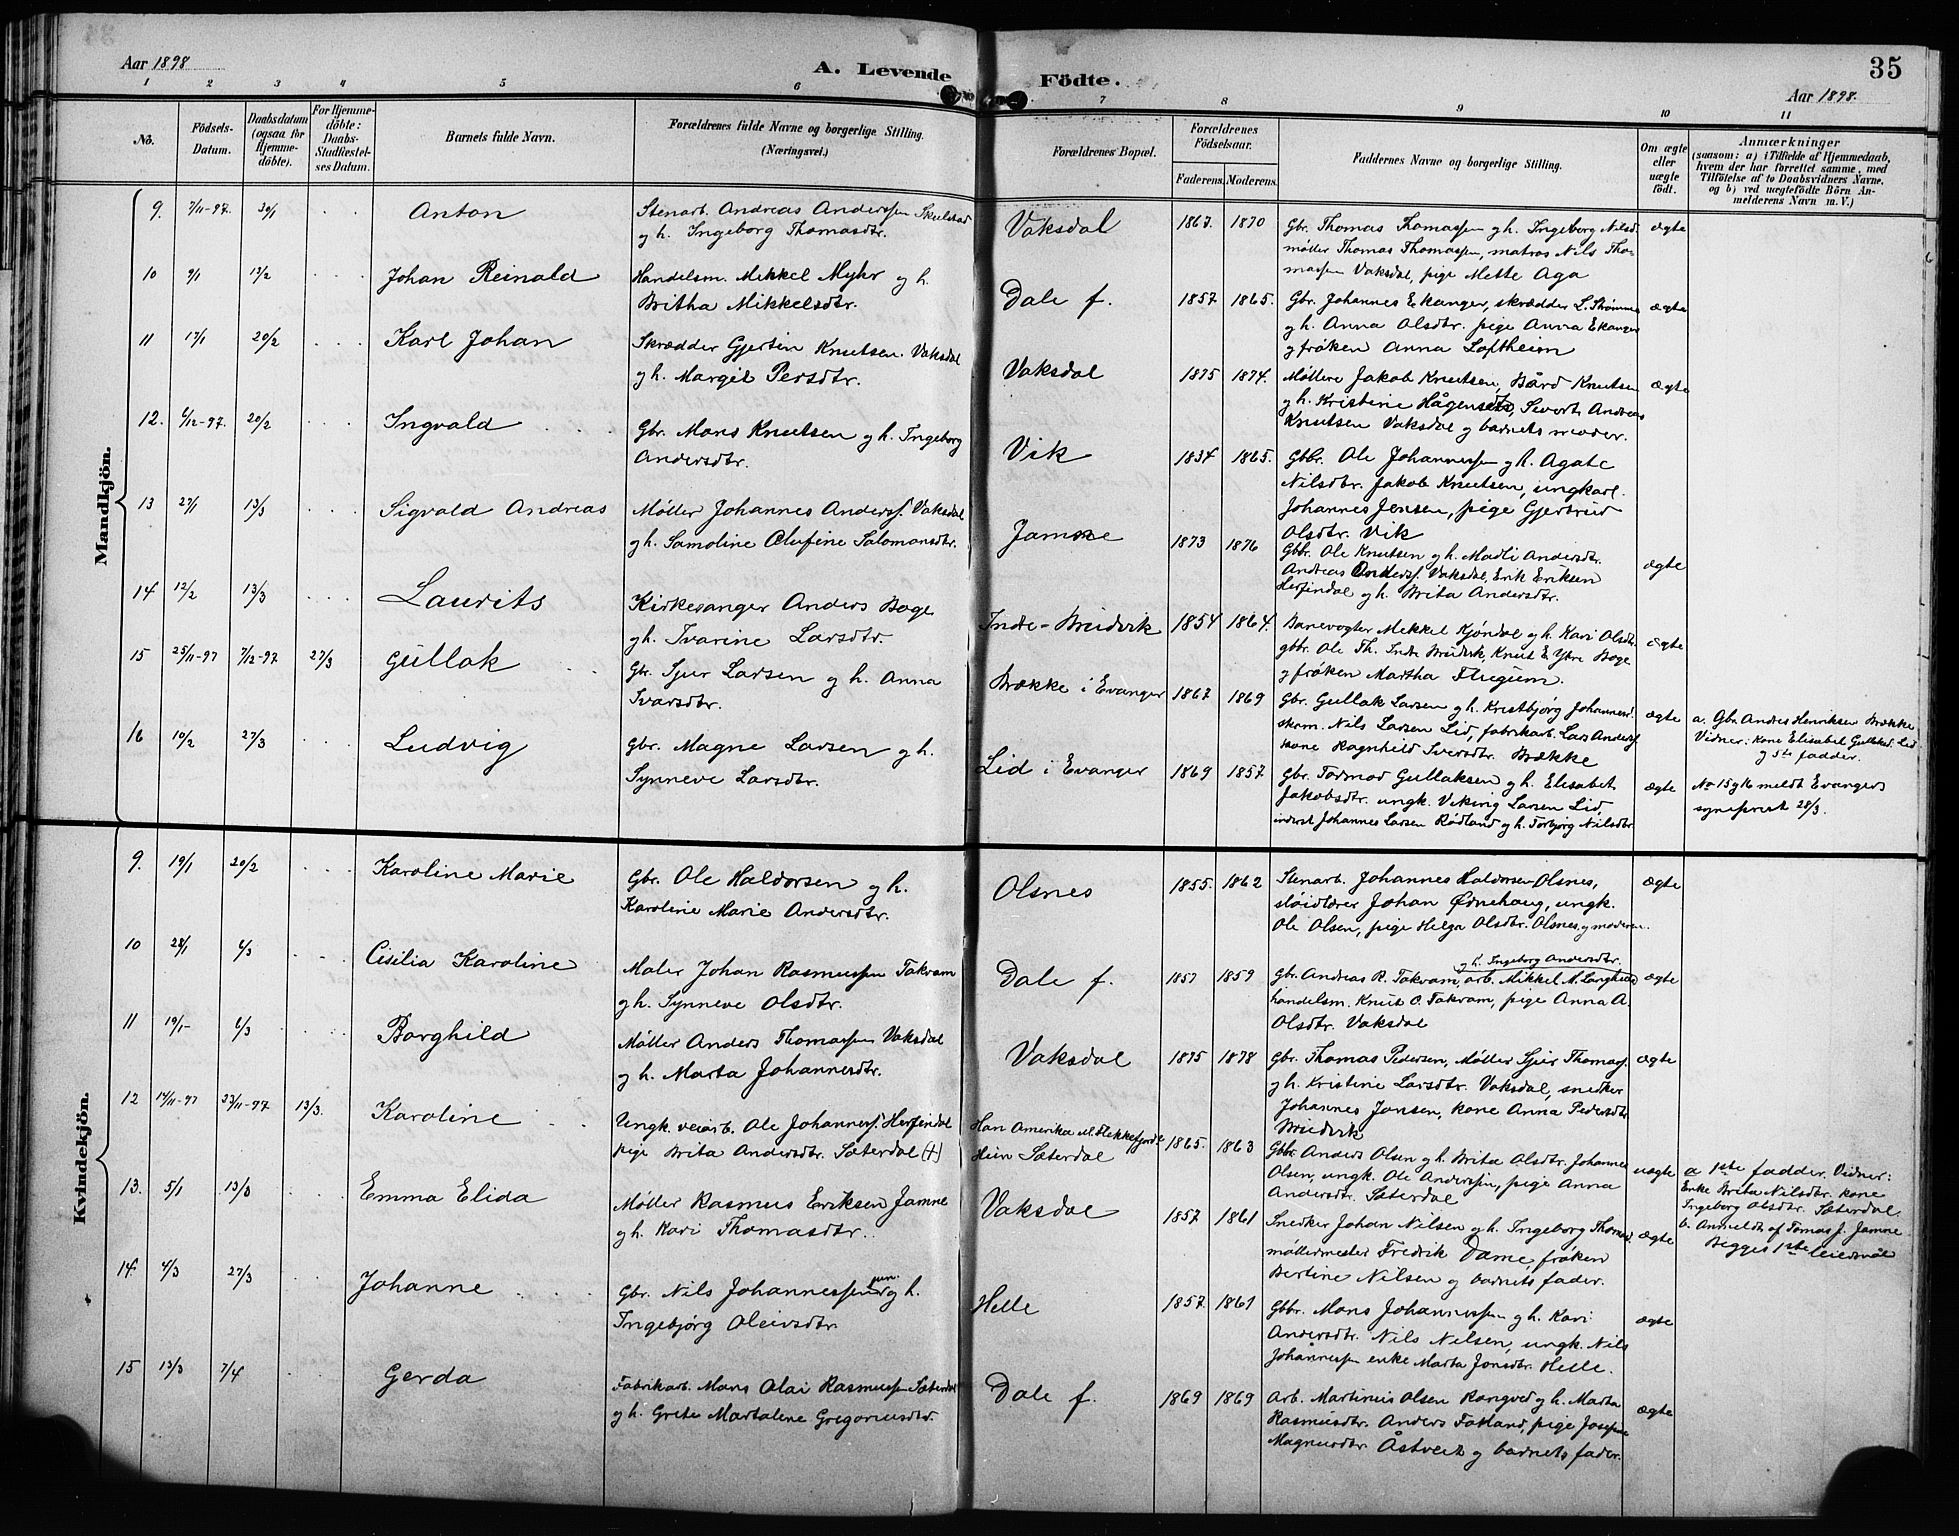 Aar 1898
A. Levende Födte.
35
Aar 1898.
1 2 3 4 5 6 7 8 9 10 11
No.
Födsels-Datum.
Daabsdatum (ogsaa for Hjemme-döbte).
For Hjemme-döbte: Daabs-Stadfæstel-ses Datum.
Barnets fulde Navn.
Forældrenes fulde Navne og borgerlige Stilling. (Næringsvei.)
Forældrenes Bopæl.
Forældrenes Födselsaar.
Faderens. Moderens.
Faddernes Navne og borgerlige Stilling.
Om ægte eller uægte födt.
Anmærkninger
(saasom: a) i Tilfælde af Hjemmedaab, hvem der har forrettet samme, med Tilföielse af to Daabsvidners Navne, og b) ved uægtefödte Börn An-melderens Navn m. V.)
Mandkjön.
9. 7/11-97. 30/1 Anton
Stenarb. Andreas Anderssen
g h. Ingeborg Thomasdtr.
Vaksdal 1867. 1870
Gbr. Thomas Thomassen g h. Ingeborg Nilsd.
møller Thomas Thomassen, matros Nils Tho-
massen Vaksdal, pige Mette Aga
ægte
10 9/1 13/2 Johan Reinald
Handelsm. Mekkel Myhr g h.
Britha Mikkelsdtr.
Dale f. 1857 1865.
Gbr. Johannes Ekanger, skrædder L. Strømme
g h. Anna Olsdtr. pige Anna Ekanger
g frøken Anna Loftheim
ægte
11 17/1 20/2 Karl Johan
Skrædder Gjertin Knutsen Vaksdal
g h. Margit Persdtr.
Vaksdal 1875 1874.
Møllere Jakob Knutsen, Bård Knutsen
g h. Kristine Hågensdtr, Severt Andreas
Knutsen Vaksdal g barnets moder.
ægte
12. 6/12-97. 20/2 Ingvald
Gbr. Mons Knutsen g h. Ingeborg
Andersdtr.
Vik 1834 1865.
Gbbr. Ole Johannessen g h. Agate
Nilsdtr. Jakob Knutsen, ungkarl
Johannes Jensen, pige Gjertrud
Olsdtr. Vik
13 27/1 13/3 Sigvald Andreas
Møller Johannes Anderss. Vaksdal
g h. Samoline Olufine Salomonsdtr.
Jamne 1873 1876
Gbbr. Ole Knutsen g h. Madli Andersdtr.
Andreas Anderss. Vaksdal, Erik Eriksen
Herfindal g h. Brita Andersdtr.
ægte
14 12/2 13/3 Laurits
Kirkesanger Anders Boge
g h. Ivarine Larsdtr.
Indre-Brudvik 1854 1864.
Banevogter Mekkel Kjøndal g h. Kari Olsdtr.
gbbr. Ole Th. Indre Brudvik, Knut E. Ytre Boge
g frøken Martha Flugum.
ægte
15 25/11-97 7/12-97 27/3 Gullak
Gbr. Sjur Larsen g h. Anna
Ivarsdtr.
Brække i Evanger 1867 1869
Gbr. Gullak Larsen g h. Kristbjørg Johannesd.
skom. Nils Larsen Lid, fabrikarb. Lars Anderss.
kone Ragnhild Sversdtr. Brække
ægte
a. Gbr. Andres Henriksen Brække
Vidner: kone Elisabet Gullaksd. Lid
g 5te fadder.
16 10/2 27/3 Ludvig
Gbr. Magne Larsen g h.
Synneve Larsdtr.
Lid i Evanger 1869 1857
Gbr. Tormod Gullaksen g h. Elisabet
Jakobsdtr. ungk. Viking Larsen Lid,
inderst Johannes Larsen Rødland g h. Torbjørg Nilsdtr
ægte
No 15 g 16 meldt Evangers
sogneprest 28/3.
Kvindekjön.
9. 19/1 20/2 Karoline Marie
Gbr. Ole Haldorsen g h.
Karoline Marie Andersdtr.
Olsnes 1855. 1862
Stenarb. Johannes Haldorsen Olsnes,
sløidlærer Johan Ødnehaug, ungk.
Ole Olsen, pige Helga Olsdtr. Olsnes, g moderen.
ægte
10 28/1 6/3 Cisilia Karoline
Maler Johan Rasmussen Takvam
g h. Synneve Olsdtr.
Dale f. 1857 1859
g h. Ingeborg Andersdtr.
Gbr. Andreas R. Takvam, arb. Mikkel M. Langhelle
handelsm. Knut O. Takvam, pige Anna A.
Olsdtr. Vaksdal
ægte
11 19/1 6/3 Borghild
Møller Anders Thomassen Vaksdal
g h. Marta Johannesdtr.
Vaksdal 1875 1878
Gbr. Thomas Pedersen, Møller Sjur Thomass.
g h. Kristine Larsdtr. Vaksdal, snedker
Johannes Jonsen, kone Anna Pedersdtr
Brudvik
ægte
12 14/11-97 23/11-97 13/3. Karoline
Ungk. veiarb. Ole Johanness. Herfindal
pige Brita Andersdtr. Sæterdal (+)
Han Amerika Flekkefjord
Hun Sæterdal
1865. 1863
Gbbr. Anders Olsen g h. Brita Olsdtr. Johannes
Olsen, ungk. Ole Anderssen, pige Anna
Andersdtr. Sæterdal
uægte
a 1ste fadder. Vidner:
Enke Brita Nilsdtr. kone
Ingeborg Olsdtr. Sæterdal.
b. Anmeldt af Tomas J. Jamne
Begges 1ste leiermål
13. 5/1 13/3 Emma Elida
Møller Rasmus Eriksen Jamne
g h. Kari Thomasdtr.
Vaksdal 1857 1861
Snedker Johan Nilsen g h. Ingeborg Thomasd.
møllermester Fredrik Dame, frøken
Bertine Nilsen g barnets fader.
ægte
14. 4/3 27/3 Johanne
Gbr. Nils Johannessen jun. g h.
Ingebjørg Oleivsdtr.
Helle 1857. 1861
Gbbr. Mons Johannessen g h. Kari
Andersdtr. Nils Nilsen, ungk. Nils
Johannessen enke Marta Jonsdtr. Helle.
ægte
15 13/3 7/4 Gerda
Fabrikarb. Mons Olai Rasmussen Sæterdal
g h. Grete Martalene Gregoriusdtr.
Dale f. 1869 1869
Arb. Martinius Olsen Rangved g h. Marta
Rasmusdtr. Anders Fatland, pige Josefine
Magnusdtr. Åstveit g barnets fader.
ægte